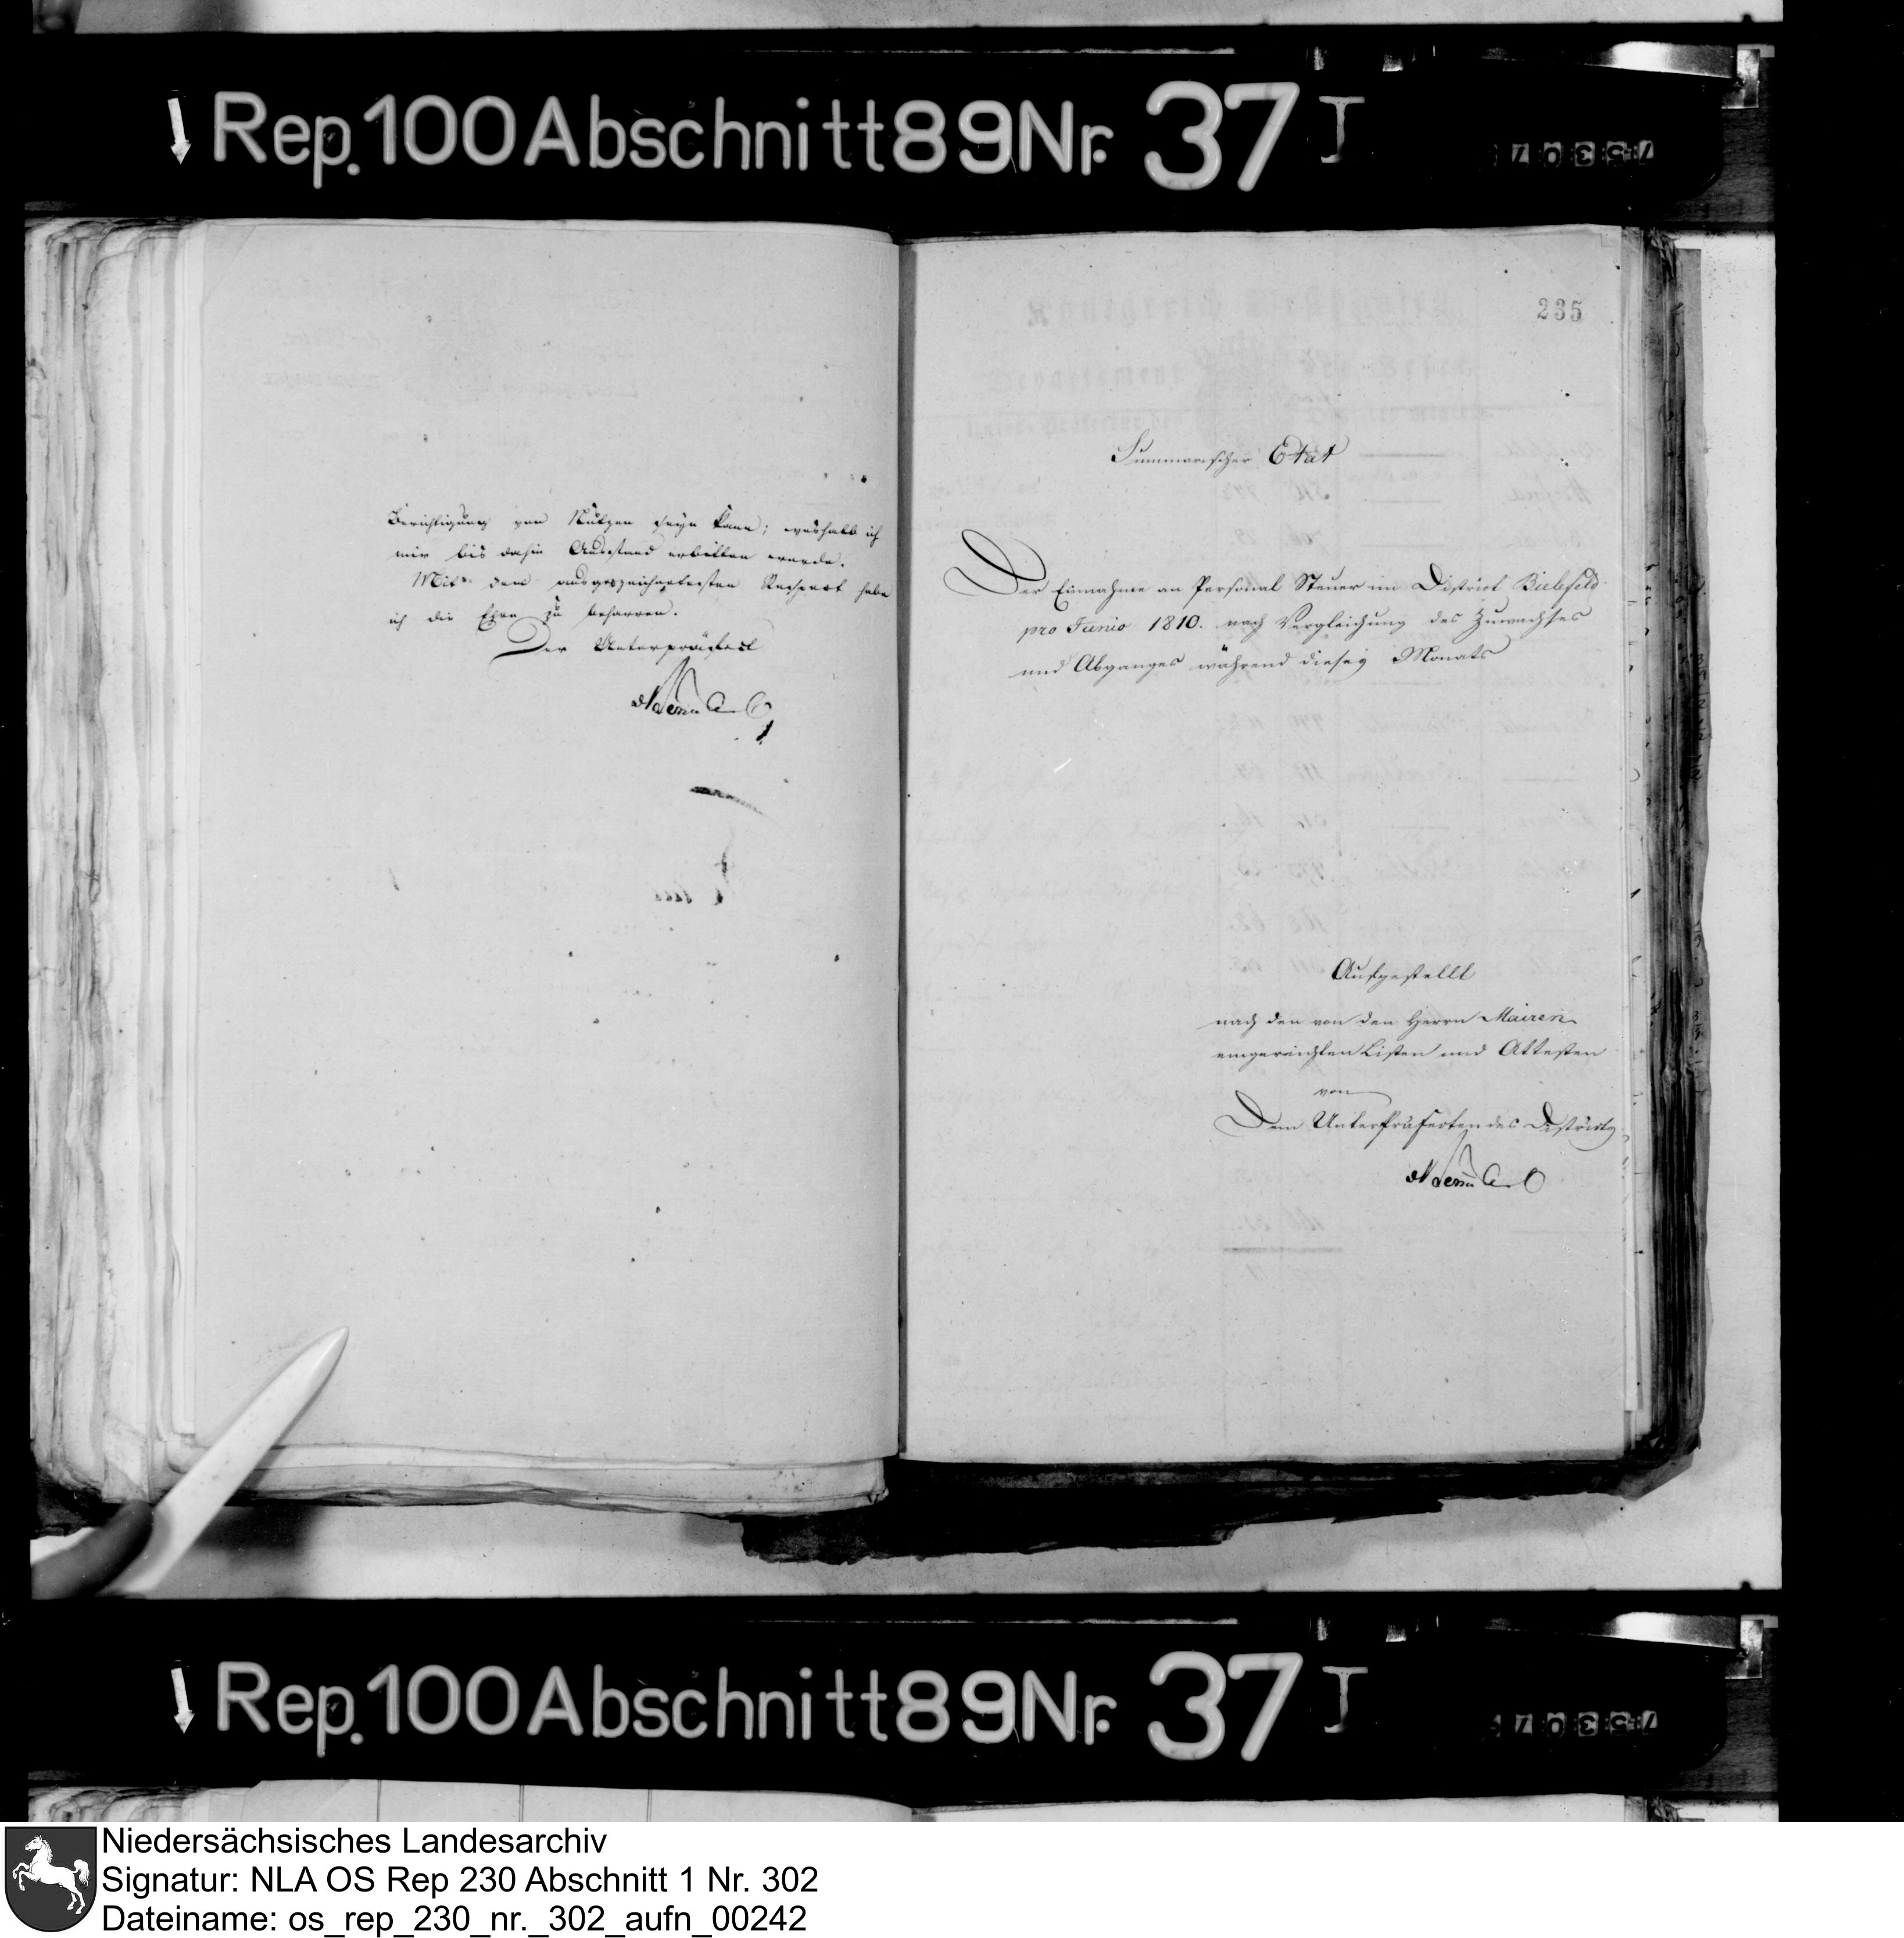 Rep. 100 Abschnitt 89 Nr. 37 I
Berichtigung von Nutzen seyn kann; weshalb ich
mir bis dahin Ausstand erbitten werde.
Mit dem ausgezeichnetesten Respect habe
ich die Ehre zu beharren.
Der Unterpräfect
235
Summarischer Etat
Der Einnahme an Personal Steuer im District Bielefeld
pro Junio 1810. nach Vergleichung des Zuwachses
und Abganges während dieses Monats
Aufgestellt
nach den von den Herrn Mairen
eingereichten Listen und Attesten
von
Dem Unterpräfecten des Districts
Rep. 100 Abschnitt 89 Nr. 37 I
Niedersächsisches Landesarchiv
Signatur: NLA OS Rep 230 Abschnitt 1 Nr. 302
Dateiname: os_rep_230_nr._302_aufn_00242